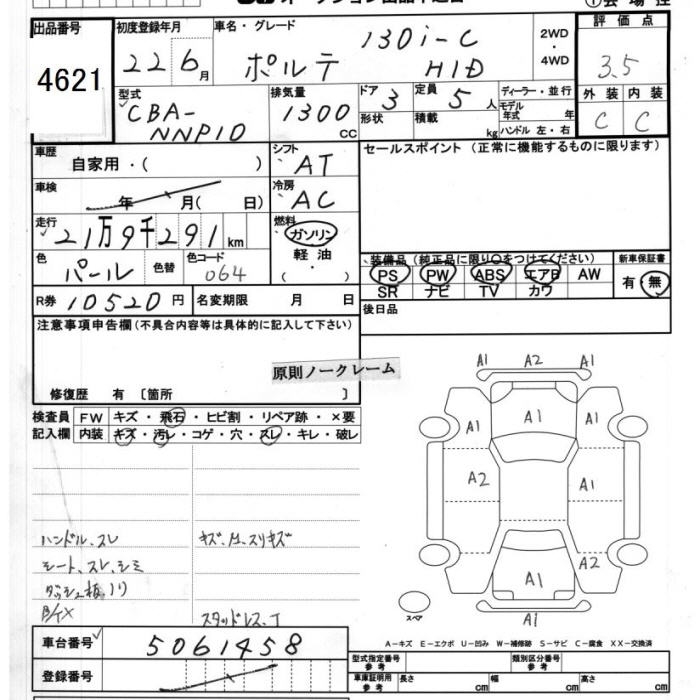 出品番号
4621
初度登録年月
22 6月
車名・グレード
130i-C
ポルテ HID
2WD
・
4WD
評価点
3.5
外装 内装
C C
型式
CBA-
NNP10
排気量
1300
CC
ドア
3
形状
定員
5人
積載
kg
ディーラー・並行
モデル
年式 年
ハンドル 左・右
車歴
自家用・( )
シフト
AT
セールスポイント (正常に機能するものに限ります)
車検
年 月( 日)
冷房
AC
走行
21万9千291km
燃料
ガソリン
軽油
( ・ )
色
パール
色替
色コード
064
装備品 (純正品に限り〇をつけてください)
PS PW ABS エアB AW
SR ナビ TV カワ
新車保証書
有・無
R券 10520円
名変期限 月 日
後日品
注意事項申告欄(不具合内容等は具体的に記入して下さい)
原則ノークレーム
修復歴 有 〔箇所 〕
検査員
記入欄
FW キズ・飛石・ヒビ割・リペア跡・×要
内装 キズ・汚レ・コゲ・穴・スレ・キレ・破レ
A1 A2 A1
A1 A1 A1
A2 A1
A1 A2
A1
スペア
ハンドル、スレ
シート、スレ、シミ
ダッシュ板ノリ
スタッドレス、
A-キズ E-エクボ U-凹み W-補修跡 S-サビ C-腐食 XX-交換済
車台番号
5061458
登録番号
型式指定番号
参考
類別区分番号
参考
車庫証明用
参考
長さ cm 幅 cm 高さ cm